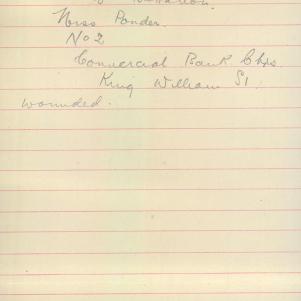 Miss Ponder.
No 2
Commercial Bank Chbs.
King William St.
wounded.